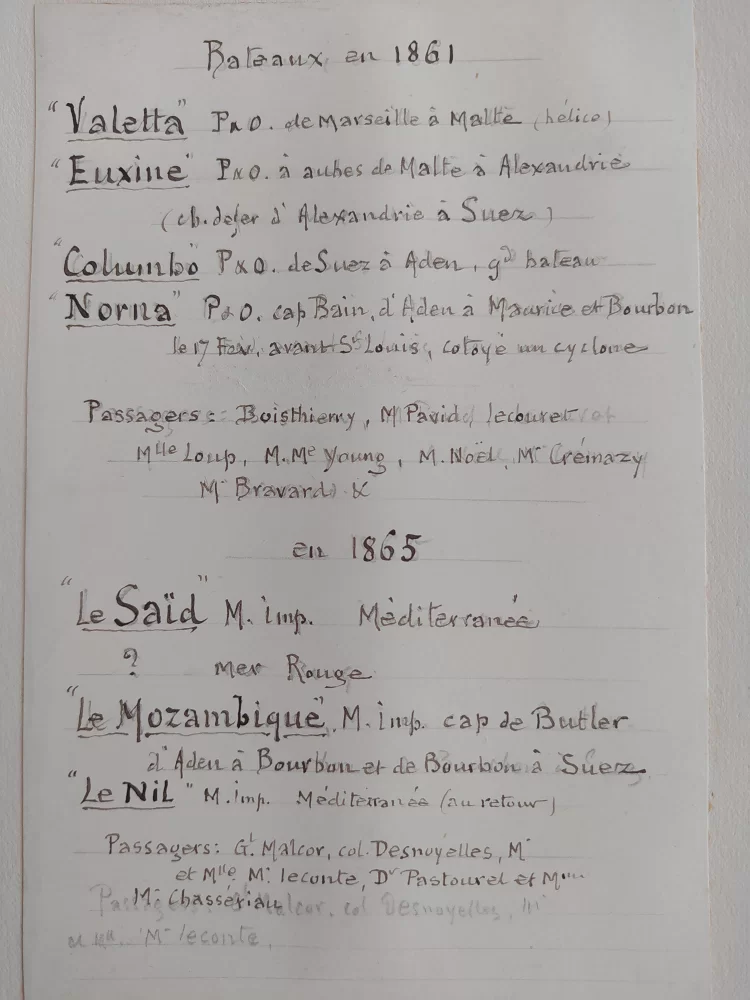 Bateaux en 1861
"Valetta" P&O. de Marseille à Malte (hélice)
"Euxine" P&O. à aubes de Malte à Alexandrie
(ch. de fer d'Alexandrie à Suez)
"Columbo" P&O. de Suez à Aden, gd bateau
"Norna" P&O. cap Bain, d'Aden à Maurice et Bourbon
le 17 Fév, avant St Louis, cotoyé un cyclone
Passagers: Boisthierry, M David, lecouret et
Mlle Loup, M. Me Young, M. Noël, Mr Crémazy
Mr Bravard &
en 1865
"Le Saïd" M. imp. Méditerranée
? mer Rouge
"Le Mozambique", M. imp. cap de Butler
d'Aden à Bourbon et de Bourbon à Suez
"Le Nil" M. imp. Méditerranée (au retour)
Passagers: Gl Malcor, col. Desnoyelles, Mr
et Mlle Mr leconte, Dr Pastourel et Mme
Mr Chassériau
Passagers: Malcor, col Desnoyelles, Mr
Mr leconte,